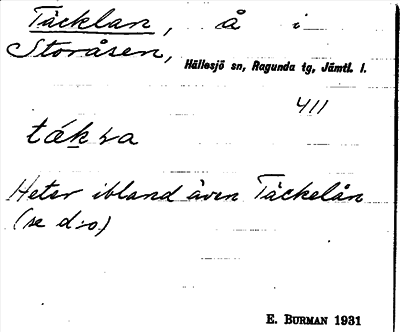 Täcklan, å i
Storåsen, Hällesjö sn, Ragunda tg, Jämtl. l.
411
Heter ibland även Täckelån
(se d:o)
E. BURMAN 1931